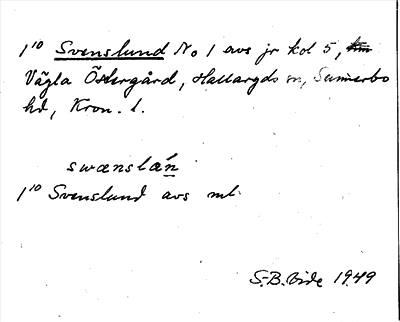 1¹⁰ Svenslund No 1 avs jr kol 5,
Vägla Östergård, Hallaryds sn, Sunnerbo
hd, Kron. l.
swænslán
1¹⁰ Svenslund avs ml.
S.-B. Vide 1949